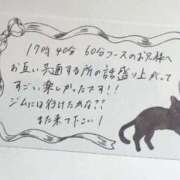 17時40分 60分コースのお兄様へ
お互い共通する所の話盛り上がって
すごい楽しかったです!!
ジムには行けたかな??
また来て下さい!